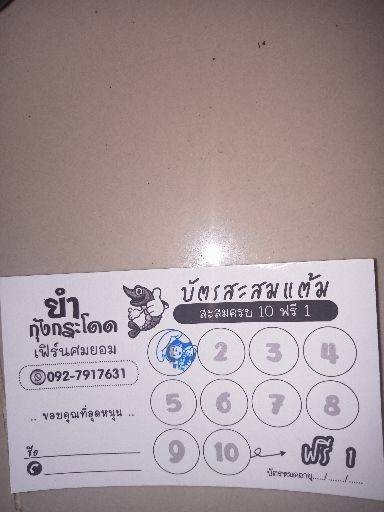 ยำ
กุ้งกระโดด
เฟิร์นศมยอม
092-7917631
.. ขอบคุณที่อุดหนุน ..
ชื่อ
บัตรสะสมแต้ม
สะสมครบ 10 ฟรี 1
2 3 4
5 6 7 8
9 10 ฟรี 1
บัตรหมดอายุ...../....../......